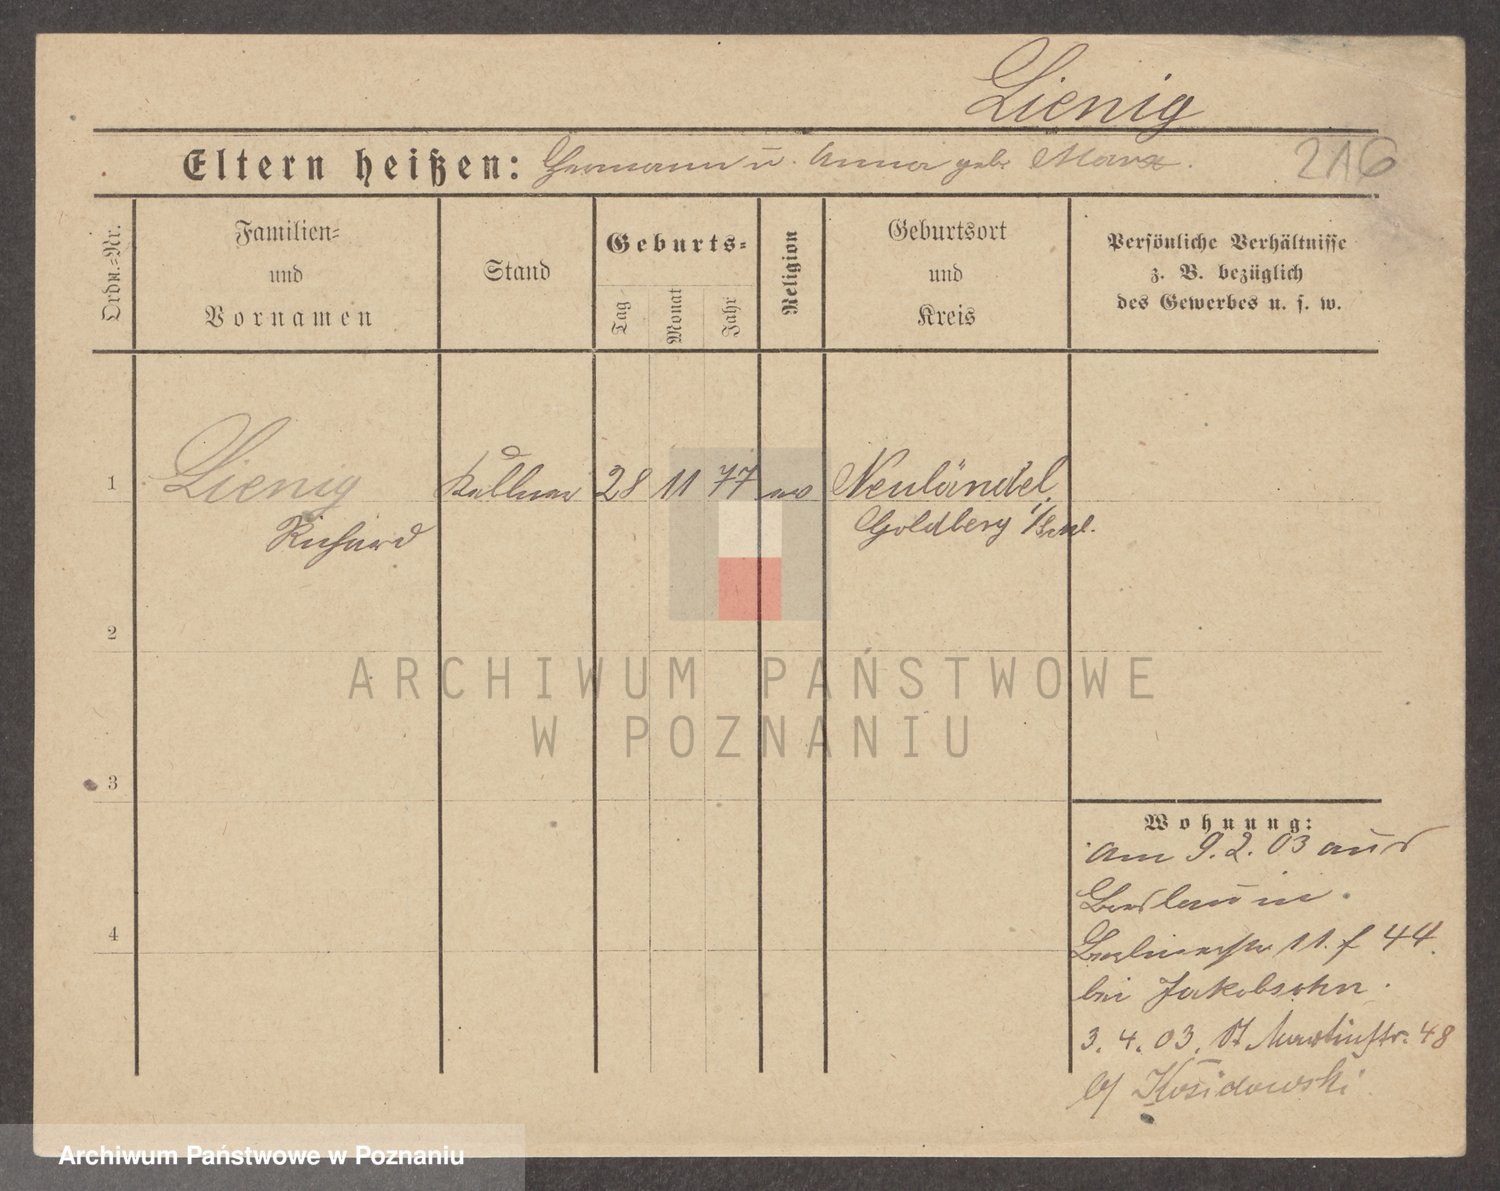 Lienig
Eltern heißen: Hermann u. Anna geb. Marx.
216
Ordn.=Nr.
Familien=
und
Vornamen
Stand
Geburts=
Tag
Monat
Jahr
Religion
Geburtsort
und
Kreis
Persönliche Verhältnisse
z. B. bezüglich
des Gewerbes u. s. w.
1
Lienig
Richard
Kellner
28 11 77
ev
Neuländel
Goldberg i/Schl.
2
3
4
Wohnung:
am 9. 2. 03 aus
Breslau in
Berlinerstr 11. f 44.
bei Jakobsohn.
3. 4. 03. St Martinstr. 48
b/ Kosidowski
ARCHIWUM PAŃSTWOWE
W POZNANIU
Archiwum Państwowe w Poznaniu